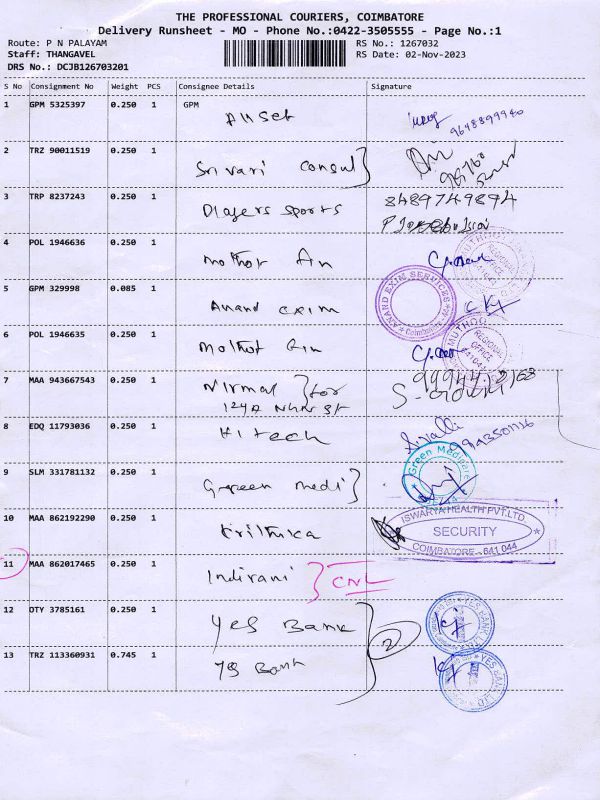 THE PROFESSIONAL COURIERS, COIMBATORE
Delivery Runsheet - MO - Phone No.:0422-3505555 - Page No.:1
Route: P N PALAYAM RS No.: 1267032
Staff: THANGAVEL RS Date: 02-Nov-2023
DRS No.: DCJB126703201
S No Consignment No Weight PCS Consignee Details Signature
1 GPM 5325397 0.250 1 GPM
9648899940
2 TRZ 90011519 0.250 1 Srivari Consul
3 TRP 8237243 0.250 1 Players sports 8489749894
4 POL 1946636 0.250 1
5 GPM 329998 0.085 1 Anand exim
ANAND EXIM SERVICES
Coimbatore
6 POL 1946635 0.250 1
REGIONAL OFFICE
7 MAA 943667543 0.250 1 Nirmal for
124A
8 EDQ 11793036 0.250 1 Hitech
9 SLM 331781132 0.250 1 Green medi
Green Medicare
10 MAA 862192290 0.250 1 Krithika
ISWARYA HEALTH PVT.LTD
SECURITY
COIMBATORE - 641 044
11 MAA 862017465 0.250 1 Indirani CNL
12 OTY 3785161 0.250 1 Yes Bank 2
YES BANK LTD
13 TRZ 113360931 0.745 1 YS Bank
YES BANK LTD